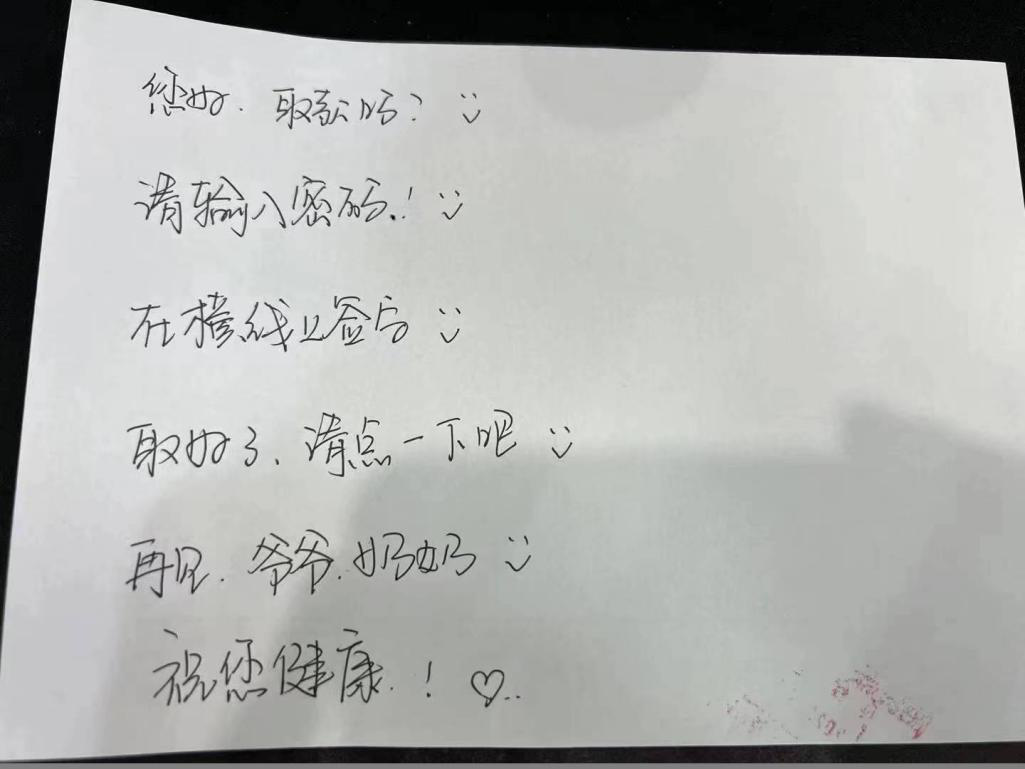 您好.取款吗?
请输入密码.!
在横线上签字
取好了、请点一下吧
再见.爷爷.奶奶
祝您健康.!♡..